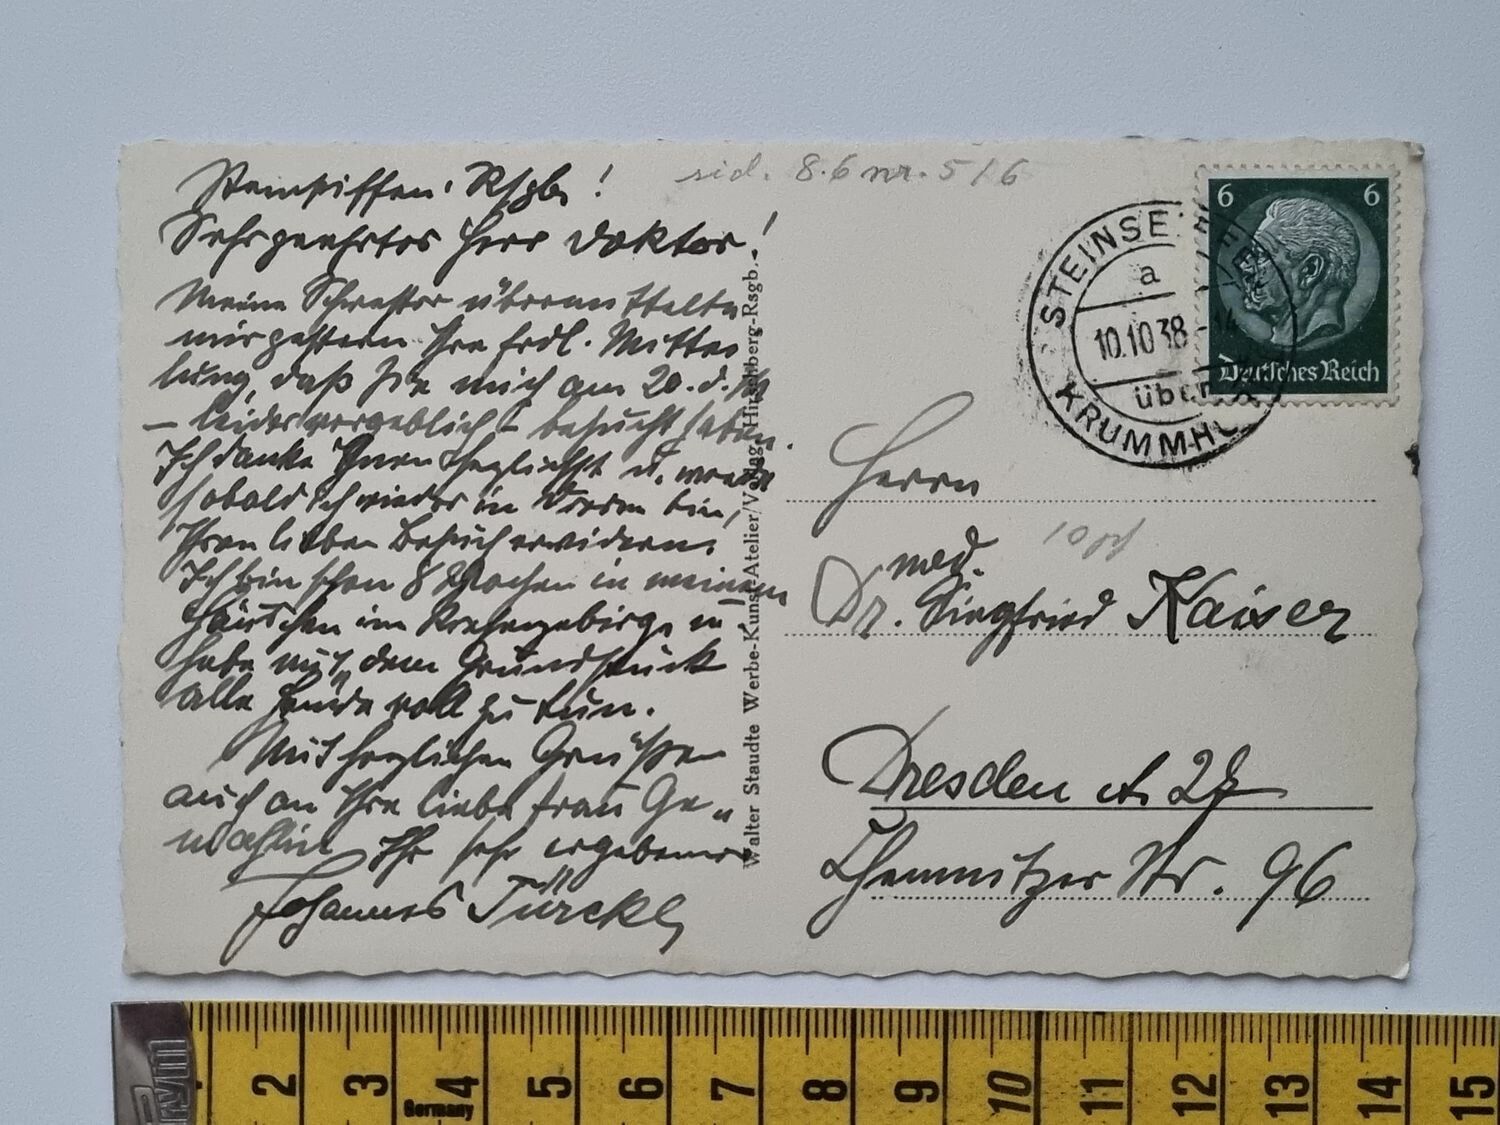 Steinseiffen. Rsgb!
Sehrgeehrter Herr Doktor!
Meine Schwester übermittelte
mir gestern Ihre frdl. Mittei
lung, daß Sie mich am 20. d. M
– leider vergeblich – besucht haben.
Ich danke Ihnen herzlichst u. werde
sobald ich wieder in Dresden bin,
Ihren lieben Besuch erwidern.
Ich bin schon 8 Wochen in meinem
Häuschen im Riesengebirge u.
habe mit dem Grundstück
alle Hände voll zu tun.
Mit herzlichen Grüßen
auch an Ihre liebe Frau Ge-
mahlin Ihr sehr ergebener
Johannes Türcke
Walter Staudte Werbe-Kunst-Atelier/Verlag, Hirschberg-Rsgb.
sid. 8.6 nr. 5/6
STEINSEIFFEN
a
10.10.38-14
über
KRUMMH
6 6
Deutsches Reich
Herrn
10 pf
med.
Dr. Siegfried Kaiser
Dresden A. 27
Chemnitzer Str. 96
2 3 4 5 6 7 8 9 10 11 12 13 14 15
Germany